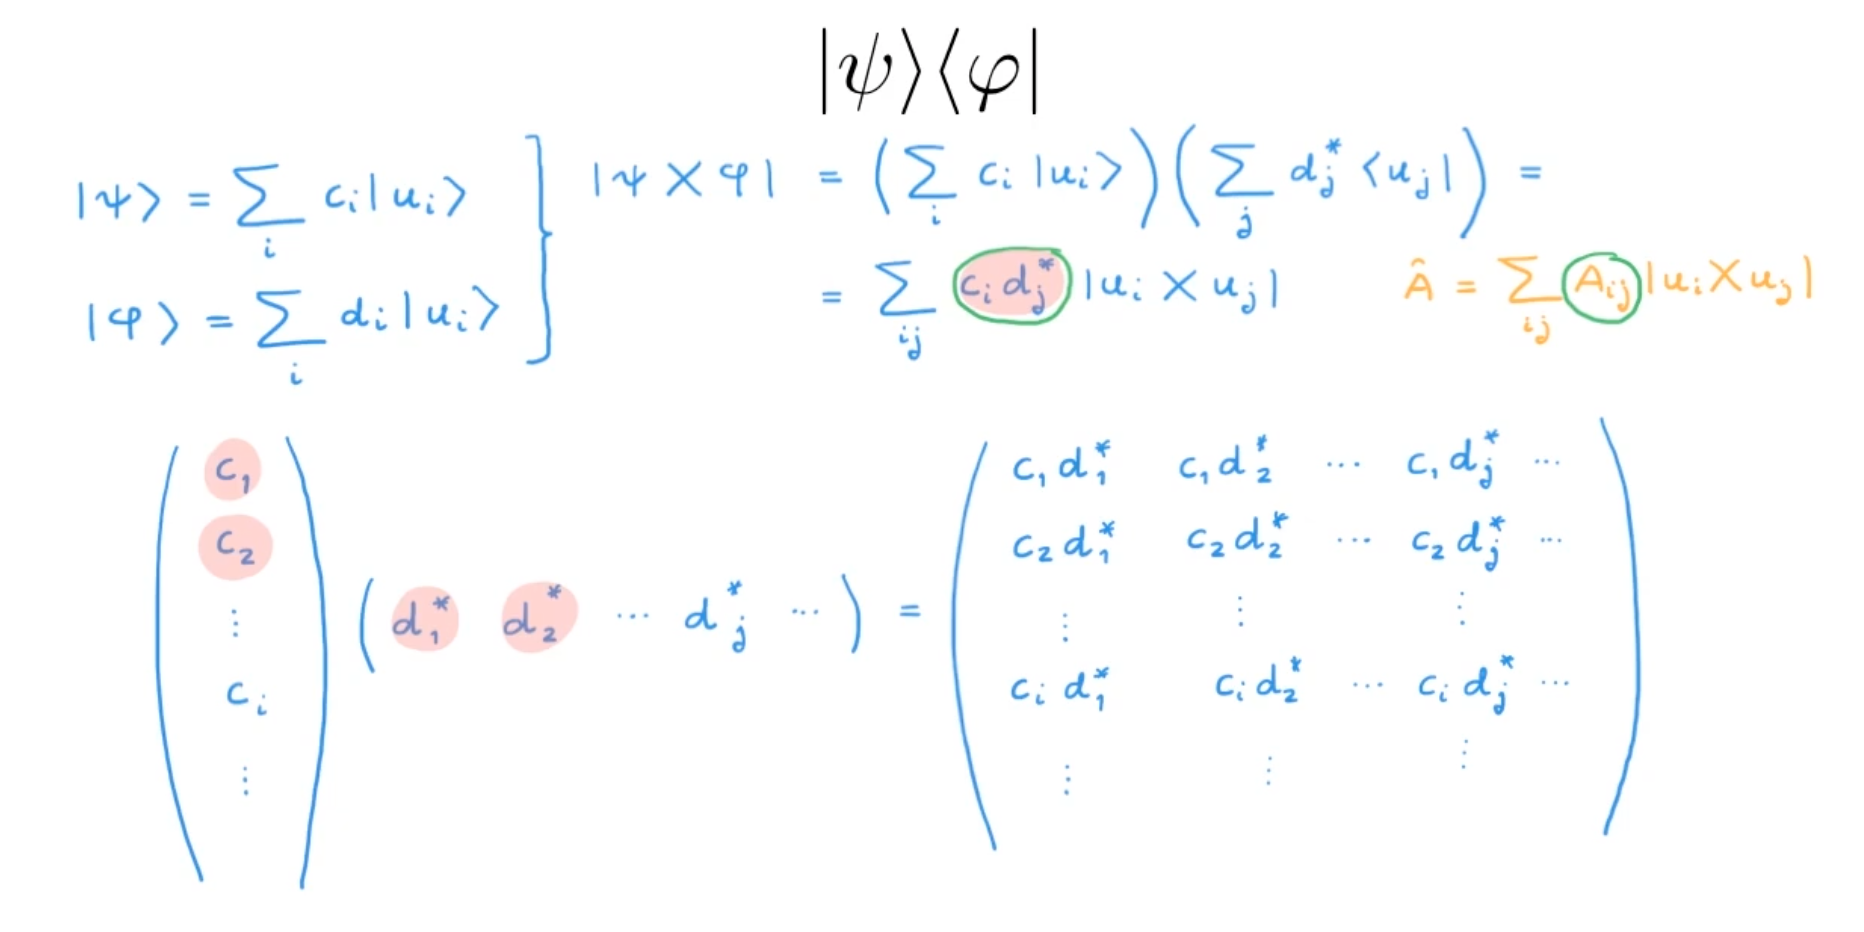 |ψ⟩⟨φ|
|ψ⟩ = ∑_i c_i |u_i⟩
|φ⟩ = ∑_i d_i |u_i⟩
|ψ⟩⟨φ| = (∑_i c_i |u_i⟩)(∑_j d_j^* ⟨u_j|) =
= ∑_ij c_i d_j^* |u_i⟩⟨u_j|
Â = ∑_ij A_ij |u_i⟩⟨u_j|
c_1
c_2
⋮
c_i
⋮
(d_1^* d_2^* ⋯ d_j^* ⋯) =
c_1 d_1^* c_1 d_2^* ⋯ c_1 d_j^* ⋯
c_2 d_1^* c_2 d_2^* ⋯ c_2 d_j^* ⋯
⋮ ⋮ ⋮
c_i d_1^* c_i d_2^* ⋯ c_i d_j^* ⋯
⋮ ⋮ ⋮